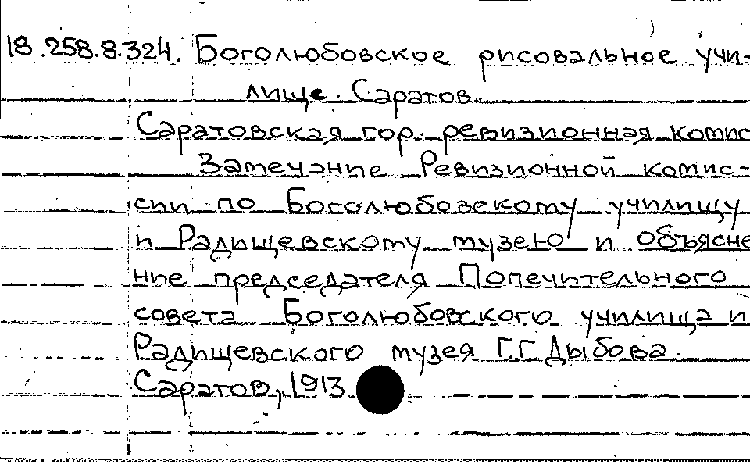 18.258.8.324. Боголюбовское рисовальное учи-
лище. Саратов.
Саратовская гор. ревизионная комис
Замечание Ревизионной комис-
сии по Боголюбовскому училищу
и Радищевскому музею и объясне
ние председателя Попечительного
совета Боголюбовского училища и
Радищевского музея Г.Г. Дыбова.
Саратов, 1913